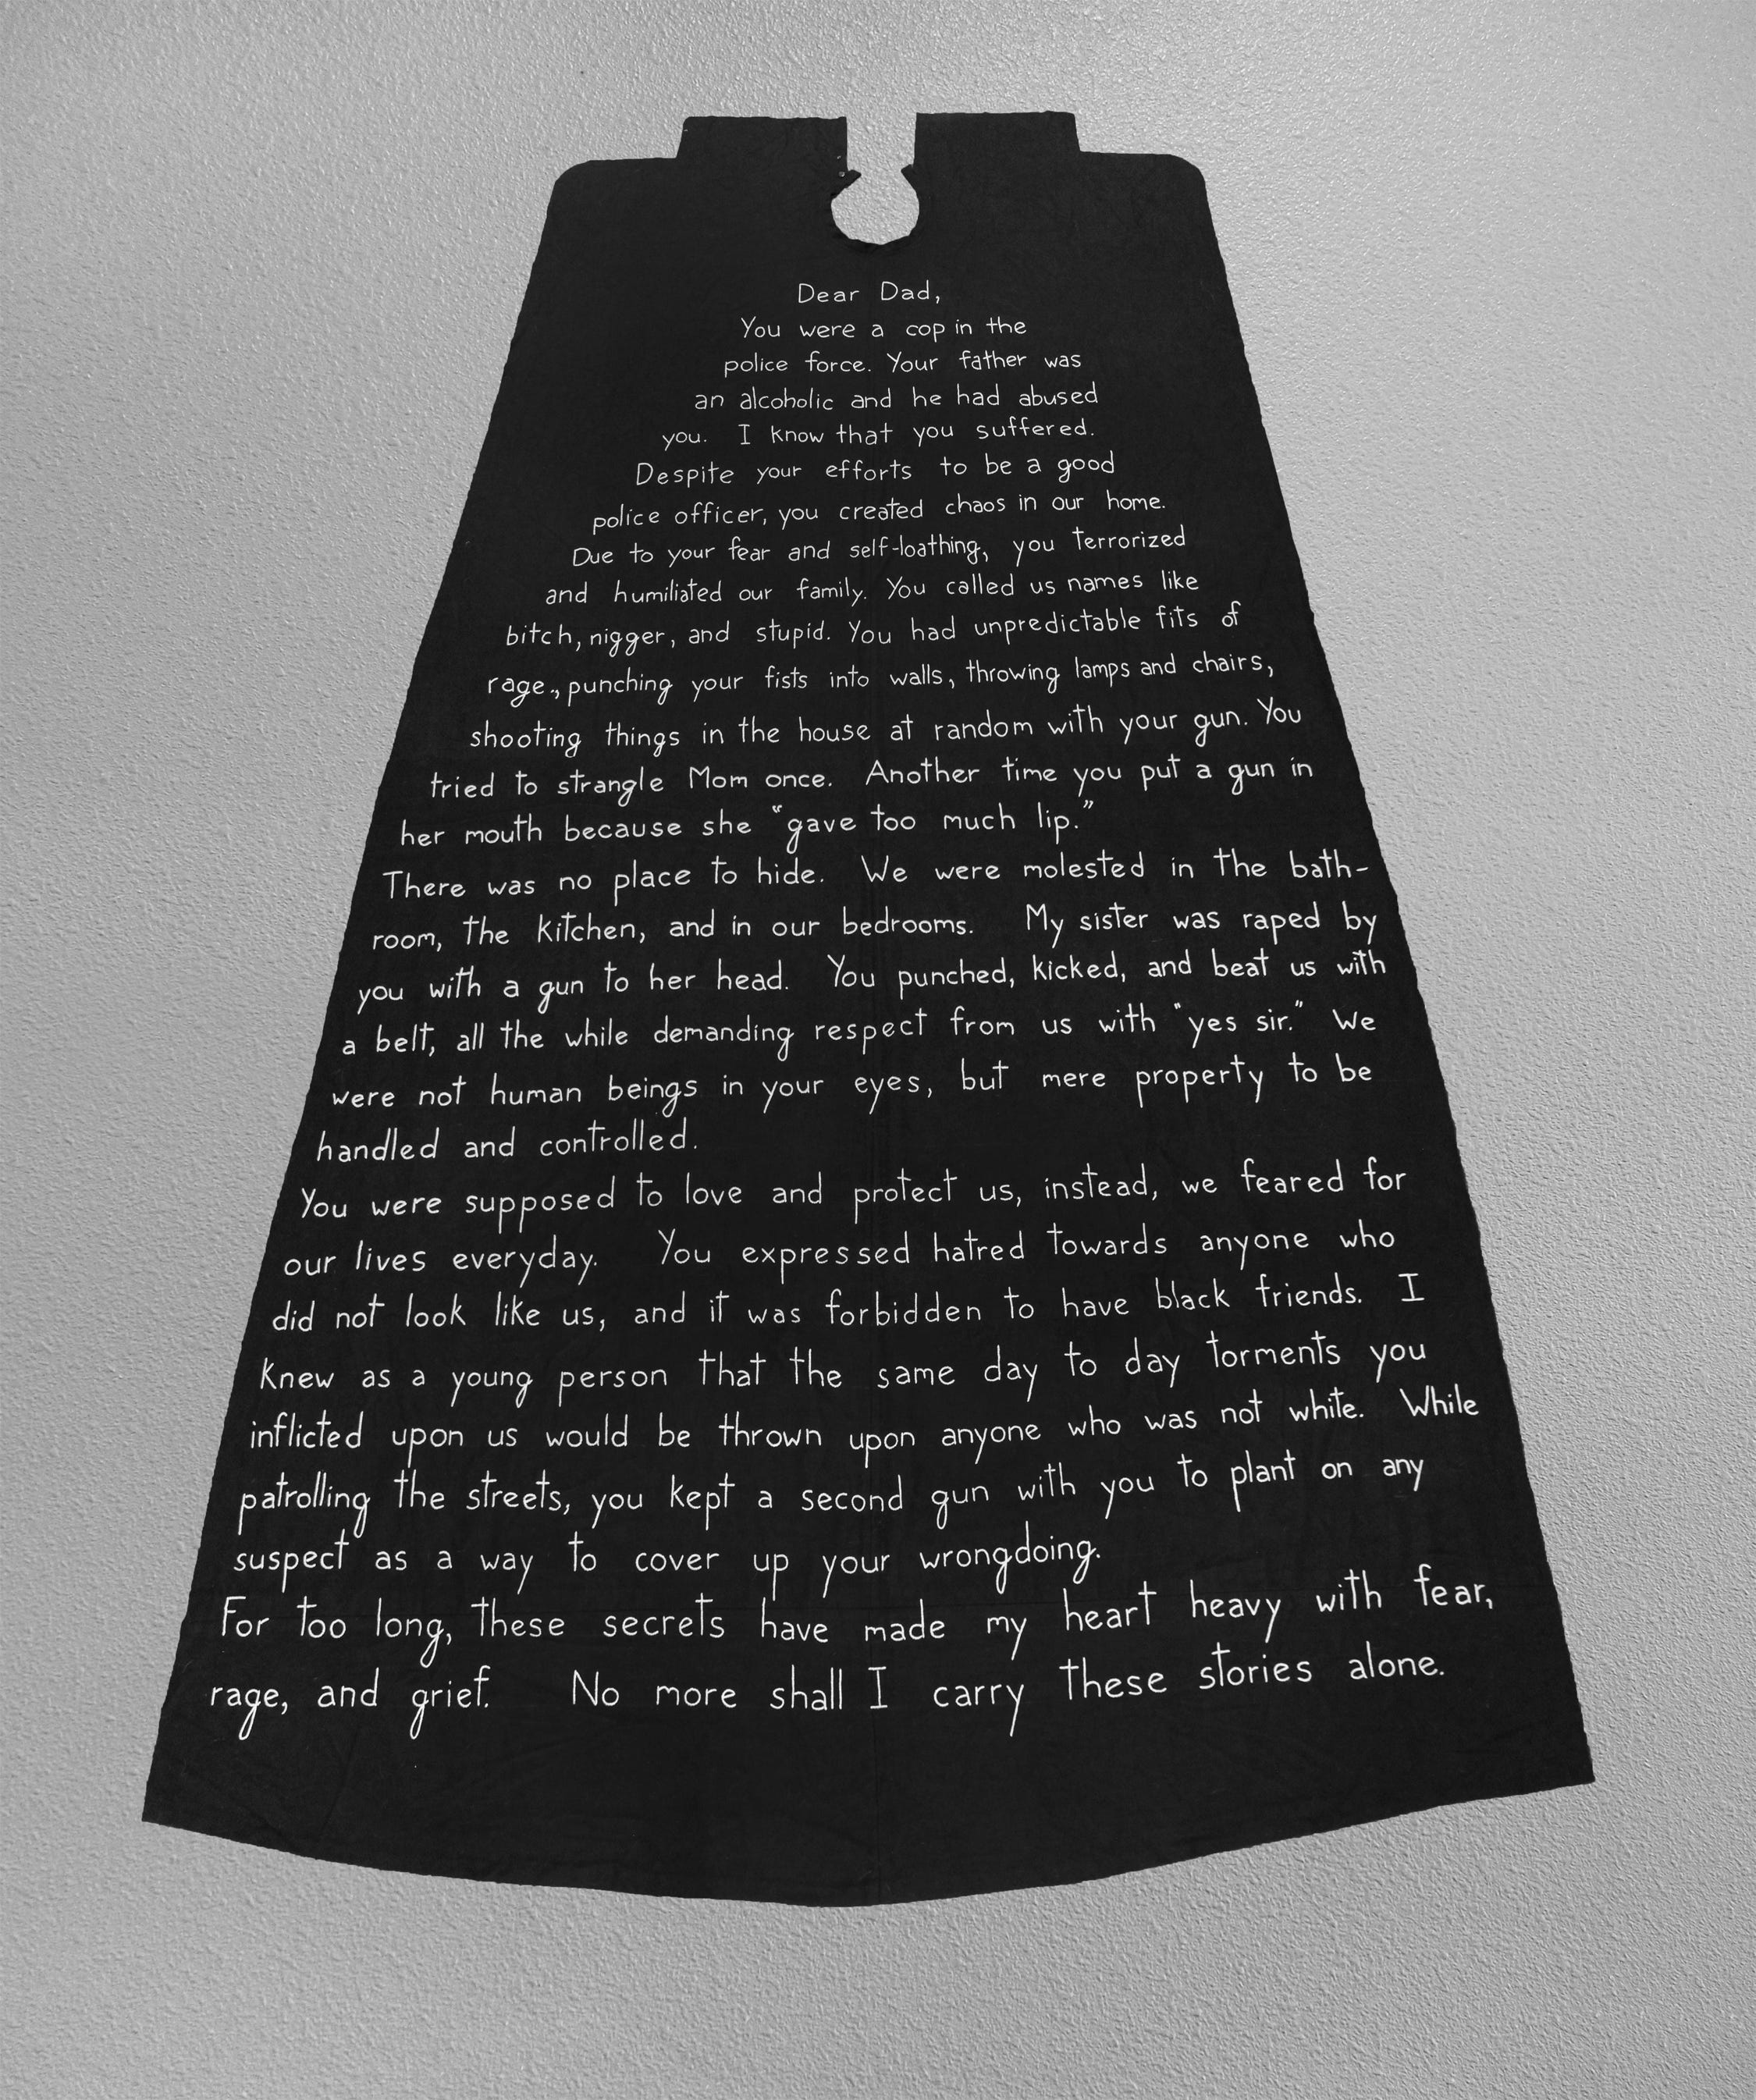 Dear Dad,
You were a cop in the
police force. Your father was
an alcoholic and he had abused
you. I know that you suffered.
Despite your efforts to be a good
police officer, you created chaos in our home.
Due to your fear and self-loathing, you terrorized
and humiliated our family. You called us names like
bitch, nigger, and stupid. You had unpredictable fits of
rage., punching your fists into walls, throwing lamps and chairs,
shooting things in the house at random with your gun. You
tried to strangle Mom once. Another time you put a gun in
her mouth because she "gave too much lip."
There was no place to hide. We were molested in the bath-
room, the kitchen, and in our bedrooms. My sister was raped by
you with a gun to her head. You punched, kicked, and beat us with
a belt, all the while demanding respect from us with "yes sir." We
were not human beings in your eyes, but mere property to be
handled and controlled.
You were supposed to love and protect us, instead, we feared for
our lives everyday. You expressed hatred towards anyone who
did not look like us, and it was forbidden to have black friends. I
knew as a young person that the same day to day torments you
inflicted upon us would be thrown upon anyone who was not white. While
patrolling the streets, you kept a second gun with you to plant on any
suspect as a way to cover up your wrongdoing.
For too long, these secrets have made my heart heavy with fear,
rage, and grief. No more shall I carry these stories alone.